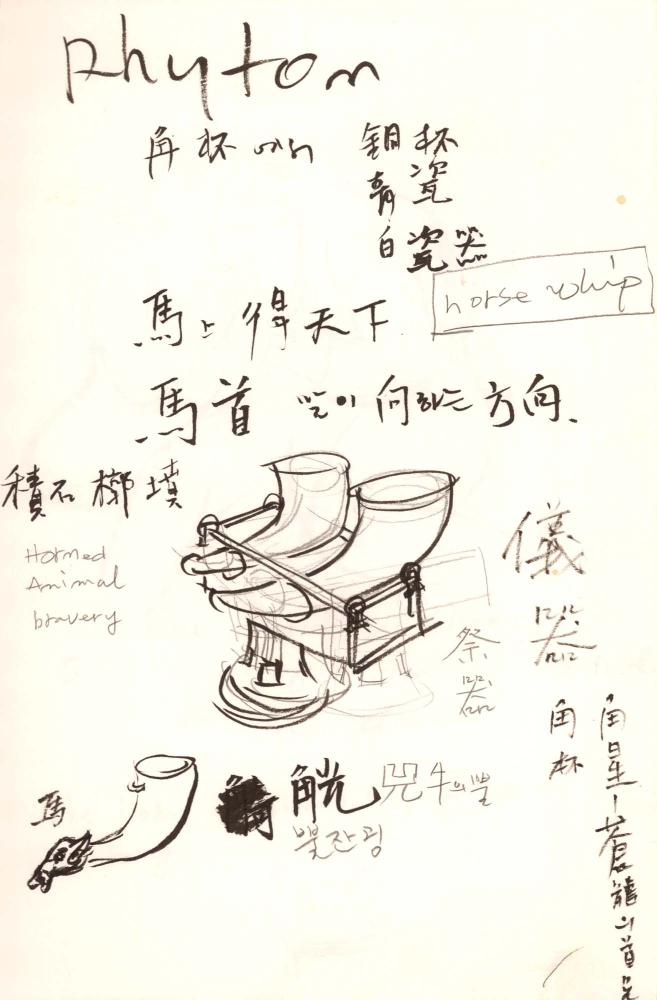 Rhyton
角杯에서 銅杯
青瓷
白瓷器
horse whip
馬上得天下
馬首 뿔이 向하는 方向.
積石槨墳
Horned
Animal
bravery
儀
器
祭
器
角杯
角星-蒼龍의首
馬
觥 兕牛의뿔
뿔잔굉